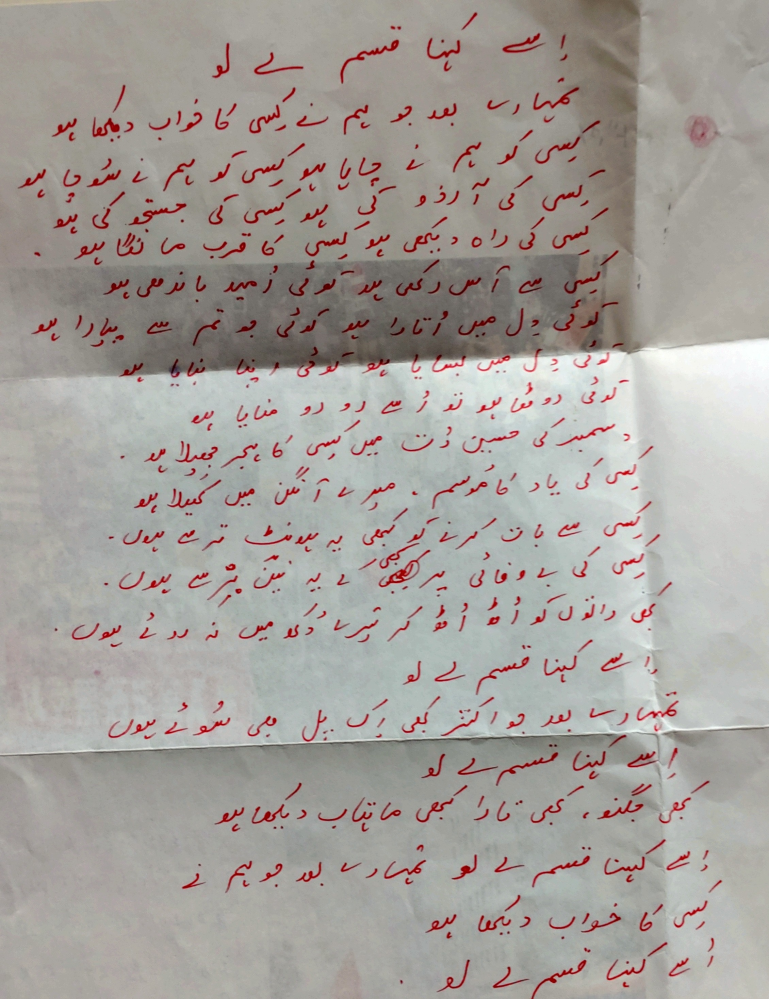 اِسے کہنا قسم لے لو
تمہارے بعد جو ہم نے کِسی کا خواب دیکھا ہو
کِسی کو ہم نے چاہا ہو کِسی کو ہم نے سُوچا ہو
کِسی کی آرزو کی ہو کِسی کی جستجو کی ہو
کِسی کی راہ دیکھی ہو کِسی کا قرب مانگا ہو ۔
کِسی سے آس رکھی ہو کوئی اُمید باندھی ہو
کوئی دِل میں اُتارا ہو کوئی جو تم سے پیارا ہو
کوئی دِل میں بسایا ہو کوئی اپنا بنایا ہو
کوئی روٹھا ہو تو اُسے رو رو منایا ہو
دسمبر کی حسین رُت میں کِسی کا ہجر جھیلا ہو ۔
کِسی کی یاد کا مُوسم ، میرے آنگن میں کھیلا ہو
کِسی سے بات کرنے کو کبھی یہ ہونٹ ترسے ہوں ۔
کِسی کی بے وفائی پر کبھی کے یہ نین برسے ہوں ۔
کبھی راتوں کو اُٹھ اُٹھ کر تیرے دُکھ میں نہ روئے ہوں ۔
اِسے کہنا قسم لے لو
تمہارے بعد جو اکثر کبھی اِک پل بھی سُوئے ہوں
اِسے کہنا قسم لے لو
کبھی جگنو ، کبھی تارا کبھی ماہتاب دیکھا ہو
اِسے کہنا قسم لے لو تمہارے بعد جو ہم نے
کِسی کا خواب دیکھا ہو
اُسے کہنا قسم لے لو ۔